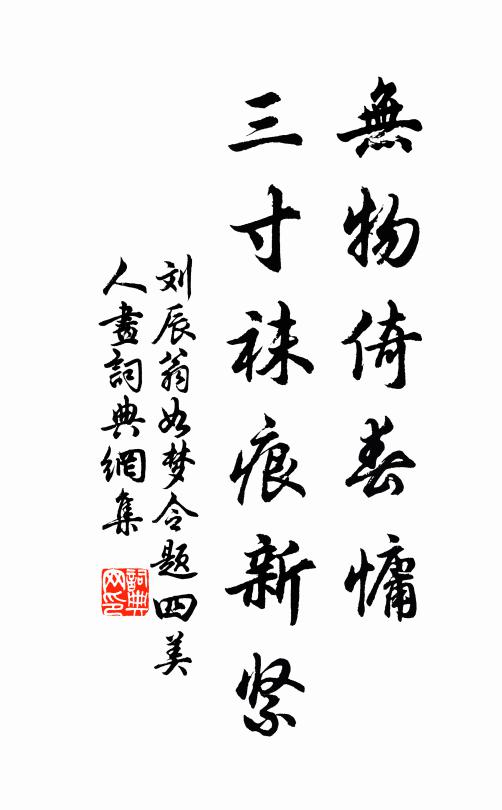 無物倚春慵
三寸袜痕新紧
刘辰翁如梦令题四美
人畫詞典網集
詞典网印